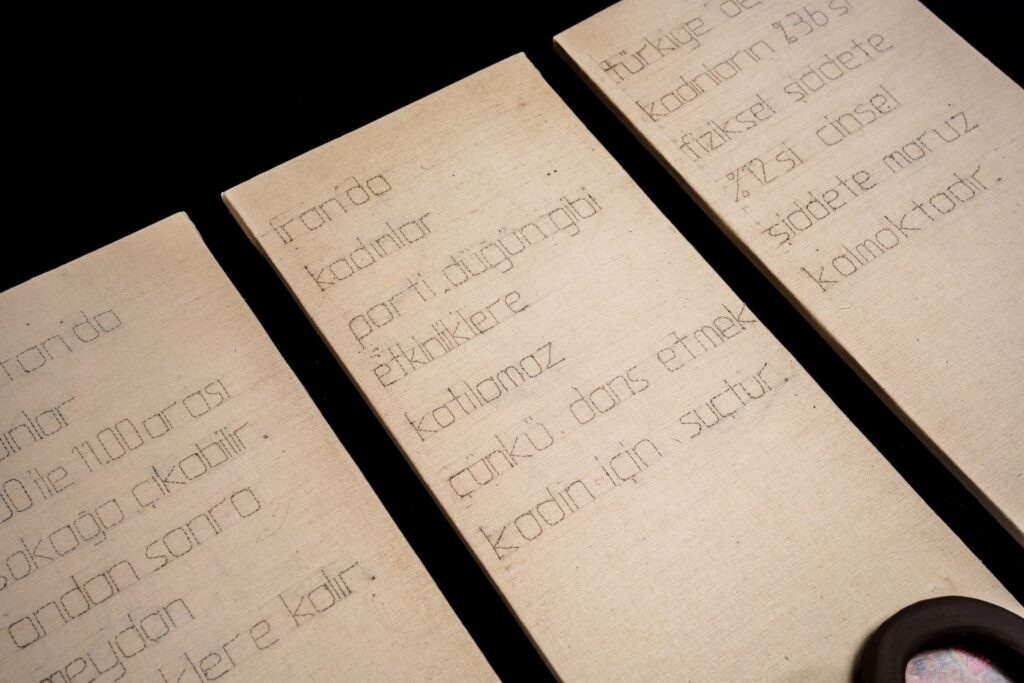 ran'da
ınlar
00 ile 11.00 arası
sokağa çıkabilir.
andan sonra
meydan
klere kalır.
iran'da
kadınlar
parti.düğün.gibi
etkinliklere
katılamaz
çünkü dans etmek
kadın için suçtur.
türkiye de
kadınların %36 sı
fiziksel şiddete
%12 si cinsel
şiddete maruz
kalmaktadır.